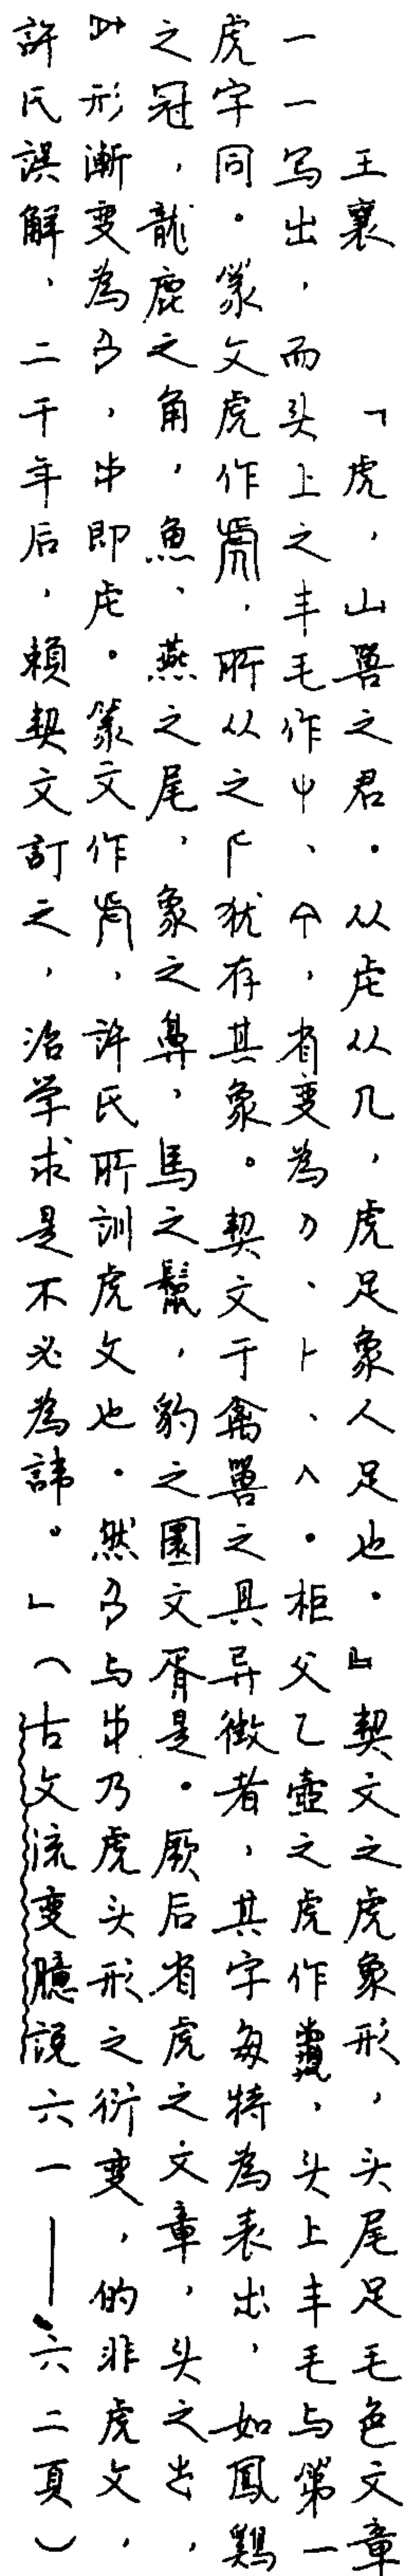 王襄 「虎，山獸之君。从虍从几，虎足象人足也。』契文之虎象形，头尾足毛色文章
一一写出，而头上之丰毛作、，省变為、卜、入。柜父乙壺之虎作，头上丰毛与第一
虎字同。篆文虎作，所从之犹存其象。契文于禽獸之具异徵者，其字每特為表出，如鳳鷄
之冠，龍鹿之角，魚、燕之尾，象之鼻，馬之鬣，豹之圜文胥是。厥后省虎之文章，头之出，
形漸变為，即虍。篆文作，許氏所訓虎文也。然与乃虎头形之衍变，的非虎文，
許氏誤解，二千年后，賴契文訂之，治学求是不必為諱。」（古文流变臆説六一——六二頁）